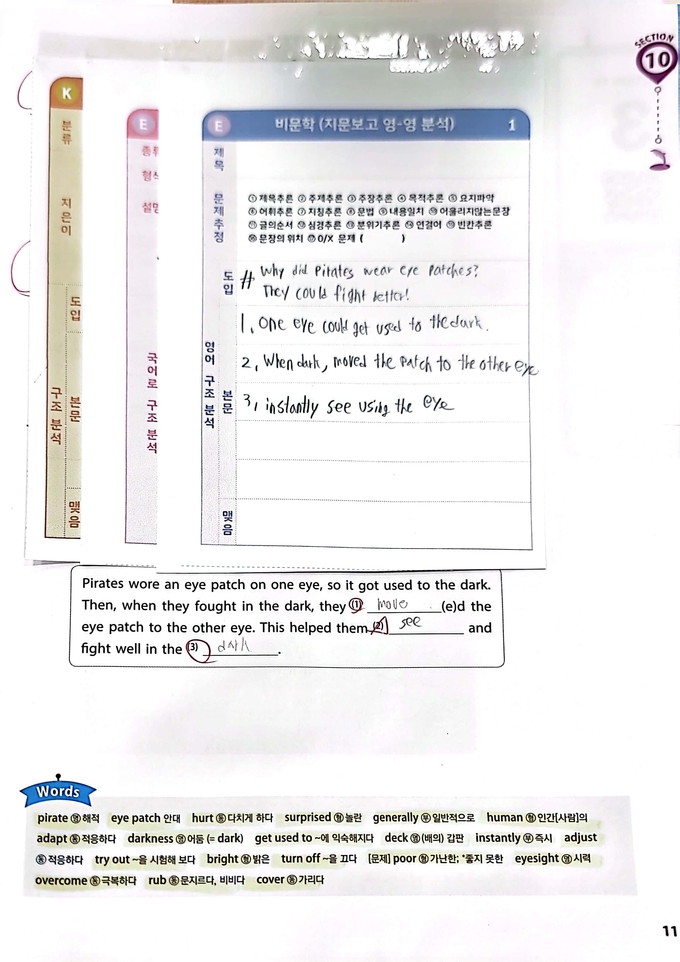 SECTION
10
K
분류
지은이
도입
본문
구조 분석
맺음
E
형식
설명
국어로 구조 분석
E 비문학 (지문보고 영-영 분석) 1
제목
문제추정
① 제목추론 ② 주제추론 ③ 주장추론 ④ 목적추론 ⑤ 요지파악
⑥ 어휘추론 ⑦ 지칭추론 ⑧ 문법 ⑨ 내용일치 ⑩ 어울리지않는문장
⑪ 글의순서 ⑫ 심경추론 ⑬ 분위기추론 ⑭ 연결어 ⑮ 빈칸추론
⑯ 문장의 위치 ⑰ O/X 문제 ( )
도입
# Why did Pirates wear eye Patches?
They could fight better!
영어 구조 분석
본문
1, One eye could get used to the dark.
2, When dark, moved the Patch to the other eye
3, instantly see using the eye
맺음
Pirates wore an eye patch on one eye, so it got used to the dark.
Then, when they fought in the dark, they (1) move (e)d the
eye patch to the other eye. This helped them (2) see and
fight well in the (3) dark.
Words
pirate 명 해적 eye patch 안대 hurt 동 다치게 하다 surprised 형 놀란 generally 부 일반적으로 human 형 인간[사람]의
adapt 동 적응하다 darkness 명 어둠 (= dark) get used to ~에 익숙해지다 deck 명 (배의) 갑판 instantly 부 즉시 adjust
동 적응하다 try out ~을 시험해 보다 bright 형 밝은 turn off ~을 끄다 [문제] poor 형 가난한; *좋지 못한 eyesight 명 시력
overcome 동 극복하다 rub 동 문지르다, 비비다 cover 동 가리다
11